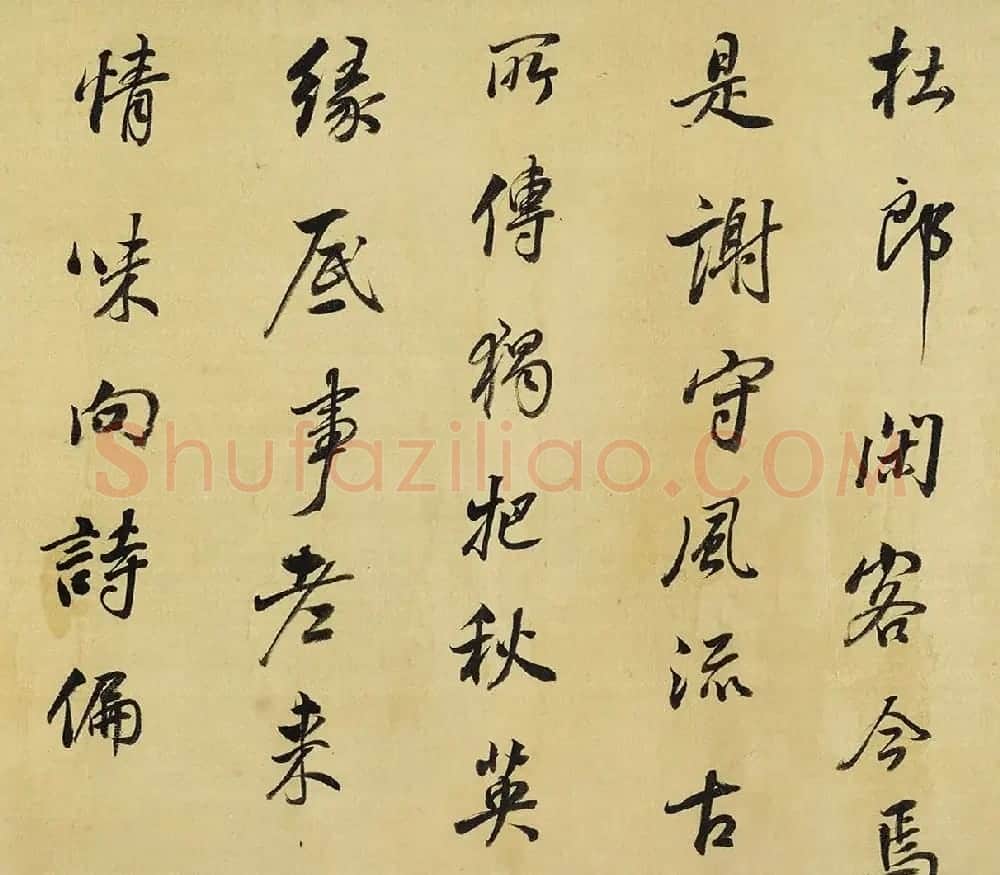 杜郎閑客今焉
是謝守風流古
所傳獨把秋英
緣底事老来
情味向詩偏
Shufaziliao.COM